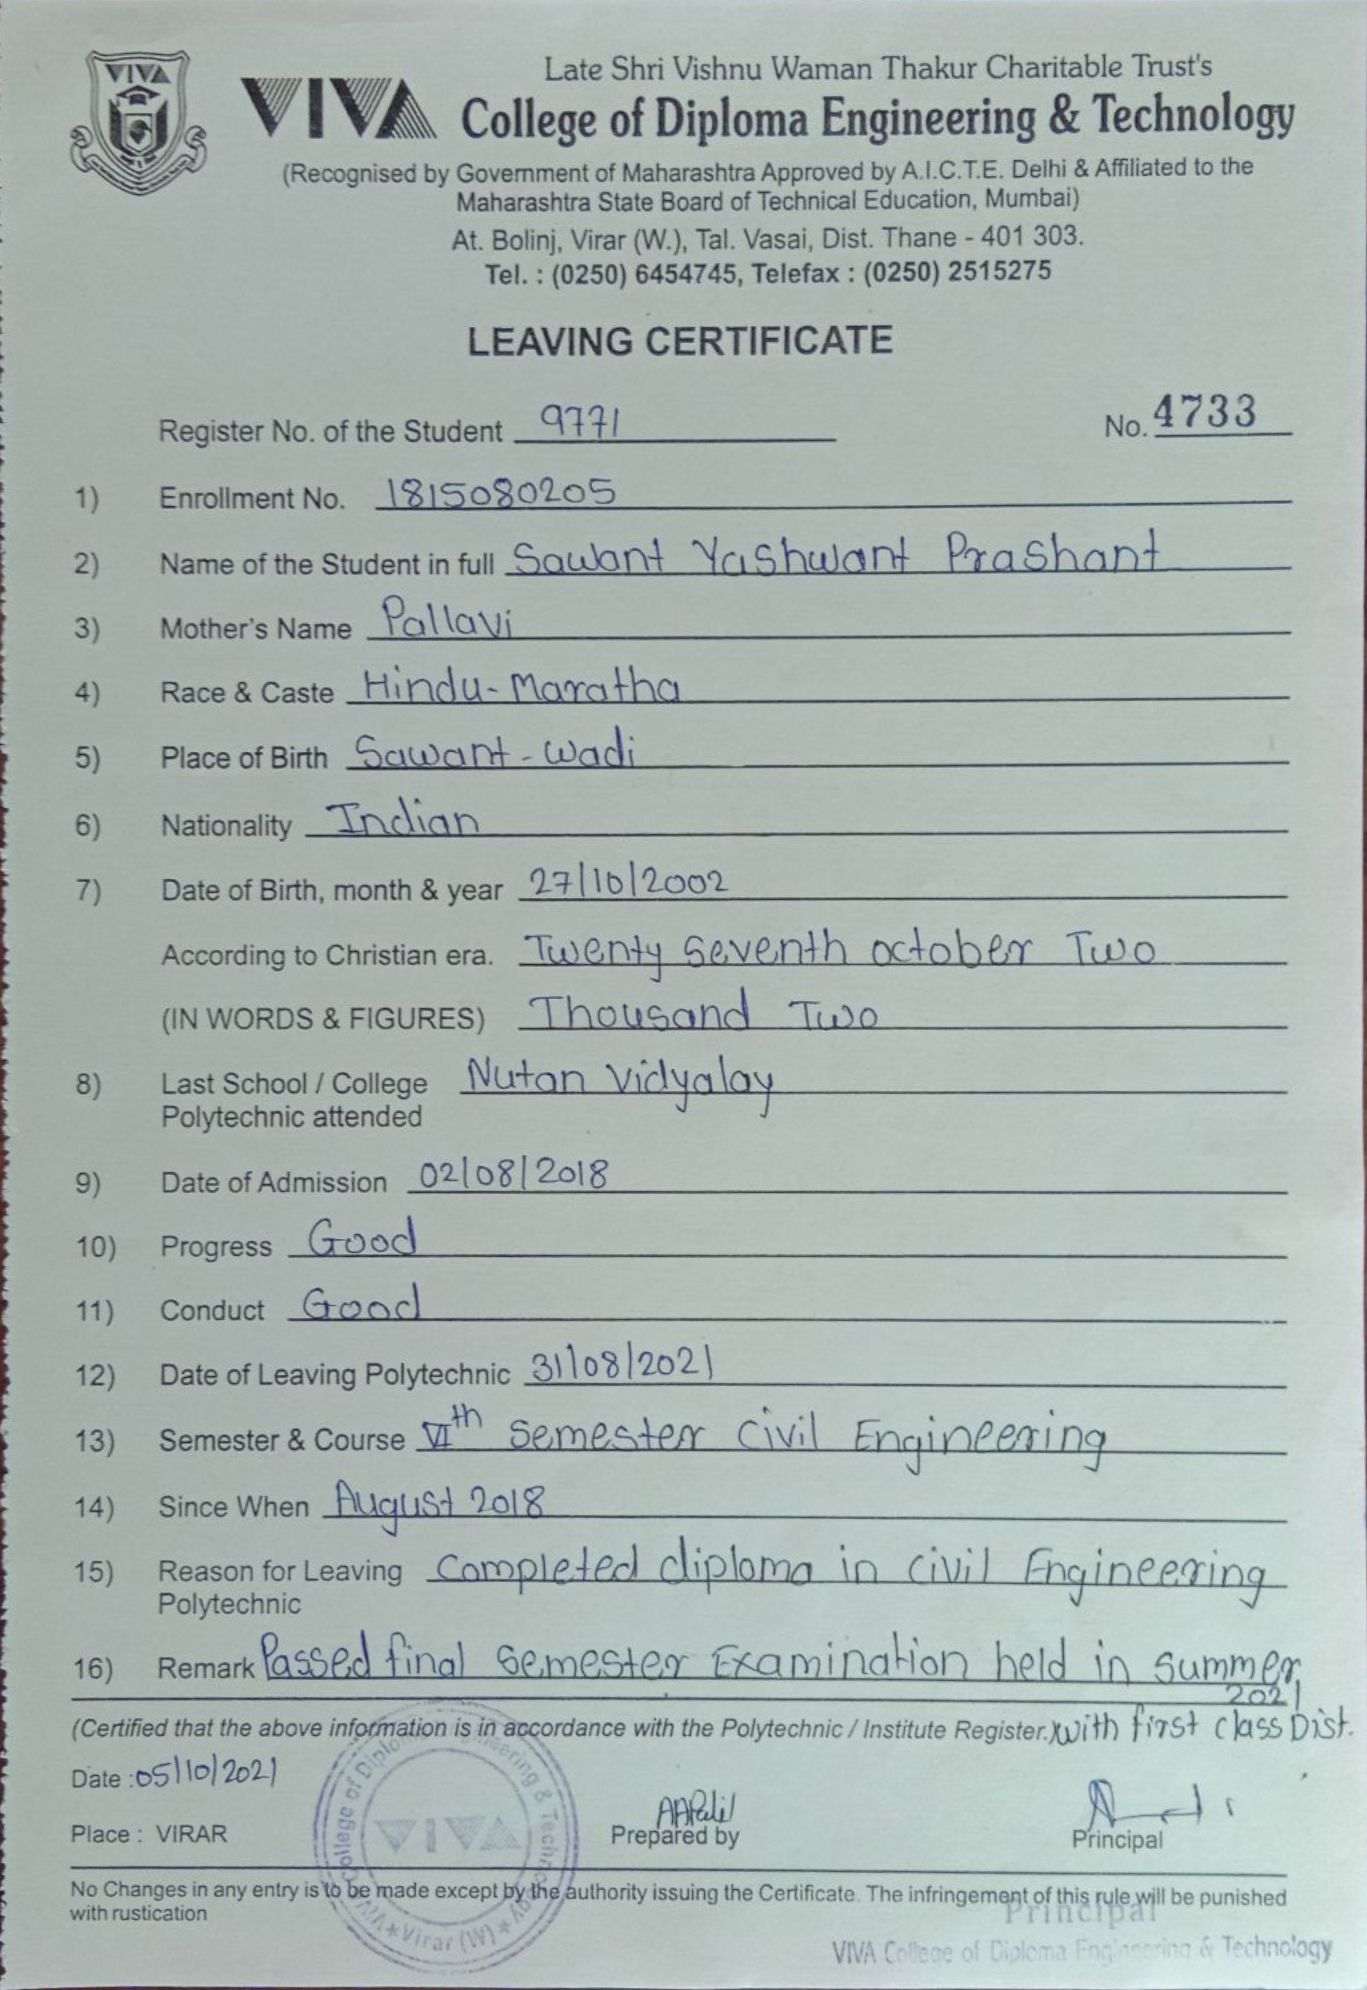 VIVA
Late Shri Vishnu Waman Thakur Charitable Trust's
VIVA College of Diploma Engineering & Technology
(Recognised by Government of Maharashtra Approved by A.I.C.T.E. Delhi & Affiliated to the
Maharashtra State Board of Technical Education, Mumbai)
At. Bolinj, Virar (W.), Tal. Vasai, Dist. Thane - 401 303.
Tel. : (0250) 6454745, Telefax : (0250) 2515275
LEAVING CERTIFICATE
Register No. of the Student 9771 No. 4733
1) Enrollment No. 1815080205
2) Name of the Student in full Sawant Yashwant Prashant
3) Mother's Name Pallavi
4) Race & Caste Hindu-Maratha
5) Place of Birth Sawant-wadi
6) Nationality Indian
7) Date of Birth, month & year 27/10/2002
According to Christian era. Twenty Seventh october Two
(IN WORDS & FIGURES) Thousand Two
8) Last School / College Nutan Vidyalay
Polytechnic attended
9) Date of Admission 02/08/2018
10) Progress Good
11) Conduct Good
12) Date of Leaving Polytechnic 31/08/2021
13) Semester & Course VIth Semester Civil Engineering
14) Since When August 2018
15) Reason for Leaving Completed diploma in civil Engineering
Polytechnic
16) Remark Passed final Semester Examination held in summer
2021
(Certified that the above information is in accordance with the Polytechnic / Institute Register.) with first class Dist.
Date : 05/10/2021
Place : VIRAR
AAPatil
Prepared by Principal
No Changes in any entry is to be made except by the authority issuing the Certificate. The infringement of this rule will be punished
with rustication
Principal
VIVA College of Diploma Engineering & Technology
VIVA College of Diploma Engineering & Technology * Virar (W) *
VIVA